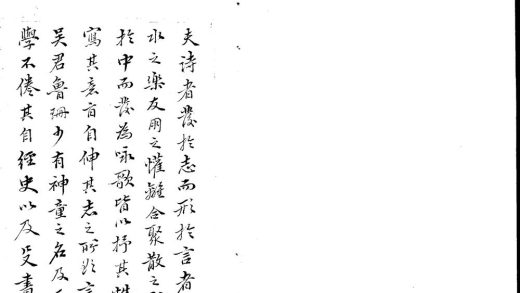 夫詩者發於志而形於言者
水之樂友朋之懽離合聚散之
於中而發為咏歌皆以抒其性
寫其意旨自伸其志之所欲言
吳君魯珊少有神童之名及
學不倦其自經史以及炎書